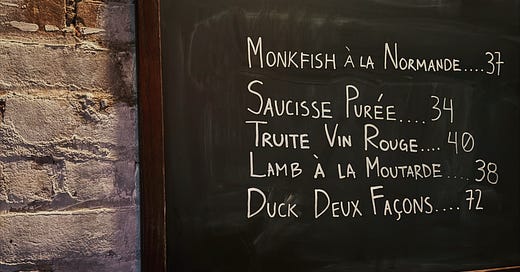 Monkfish à la Normande....37
Saucisse Purée....34
Truite Vin Rouge....40
Lamb à la Moutarde....38
Duck Deux Façons....72